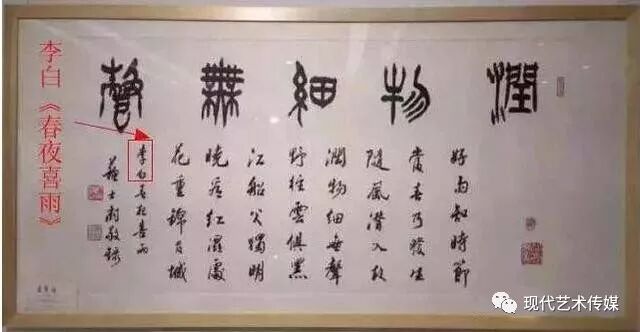 潤物細無聲
好雨知時節
當春乃發生
隨風潛入夜
潤物細無聲
野徑雲俱黑
江船火獨明
曉看紅濕處
花重錦官城
李白春夜喜雨
蘇士澍敬錄
李白《春夜喜雨》
现代艺术传媒